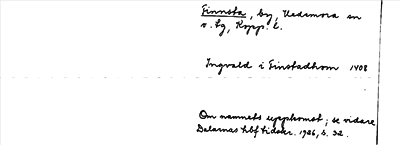 Finnsta, by, Vedemora sn
v. tg, Kopp. l.
Ingvald i Finstadhom 1408
Om namnets uppkomst; se vidare
Dalarnas hbf tidskr. 1926, s. 32.